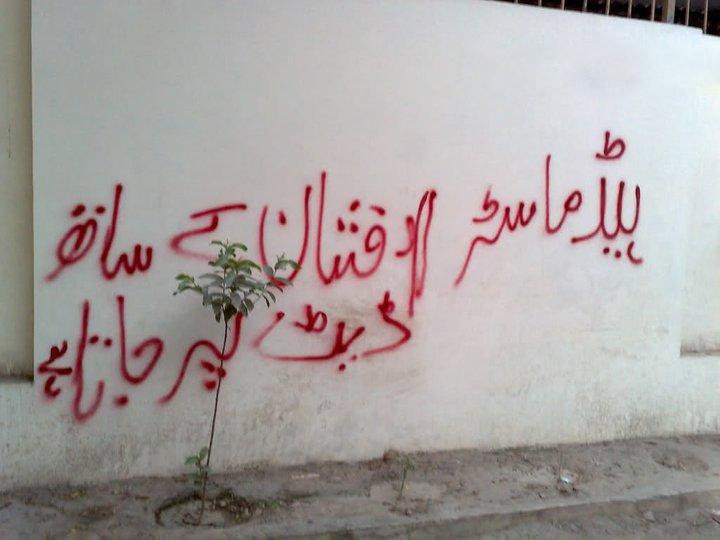 ہیڈ ماسٹر کے ساتھ
ڈیٹ پر جاتا ہے